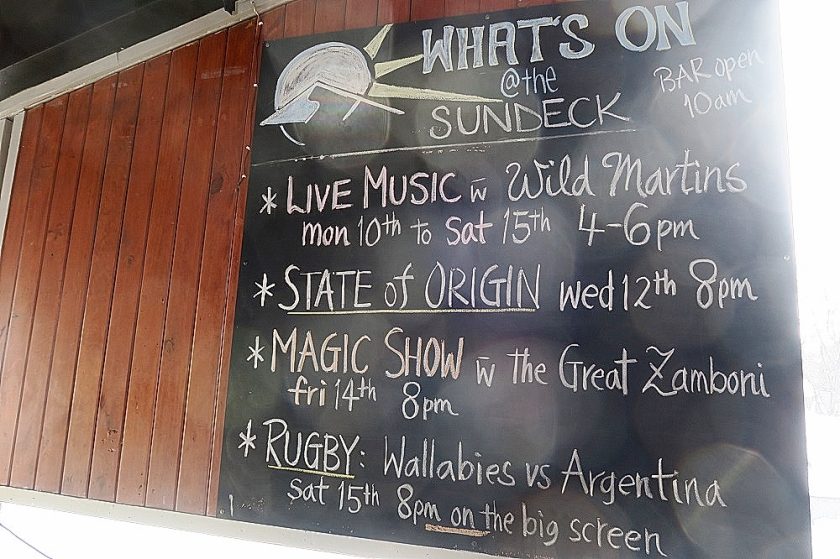 WHAT'S ON
@the
SUNDECK
BAR open
10am
* LIVE MUSIC w̄ Wild Martins
mon 10th to sat 15th 4-6pm
* STATE of ORIGIN wed 12th 8pm
* MAGIC SHOW w̄ the Great Zamboni
fri 14th 8pm
* RUGBY: Wallabies vs Argentina
sat 15th 8pm on the big screen